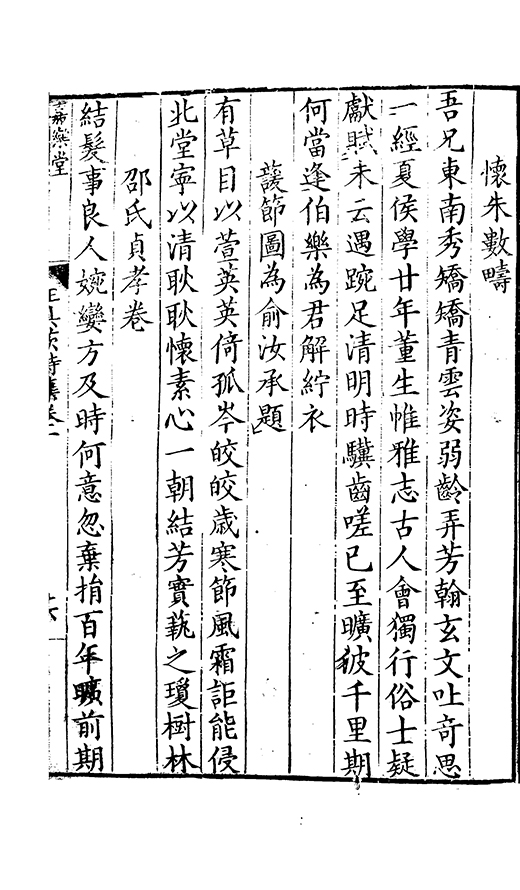 懷朱數疇
吾兄東南秀矯矯青雲姿弱齡弄芳翰玄文吐奇思
一經夏侯學廿年董生帷雅志古人會獨行俗士疑
獻賦未云遇踠足清明時驥齒嗟已至曠彼千里期
何當逢伯樂為君解紵衣
蘐節圖為俞汝承題
有草目以萱英英倚孤岑皎皎歲寒節風霜詎能侵
北堂寧以清耿耿懷素心一朝結芳實蓺之瓊樹林
邵氏貞孝卷
結髮事良人婉孌方及時何意忽棄捐百年曠前期
詩集卷一